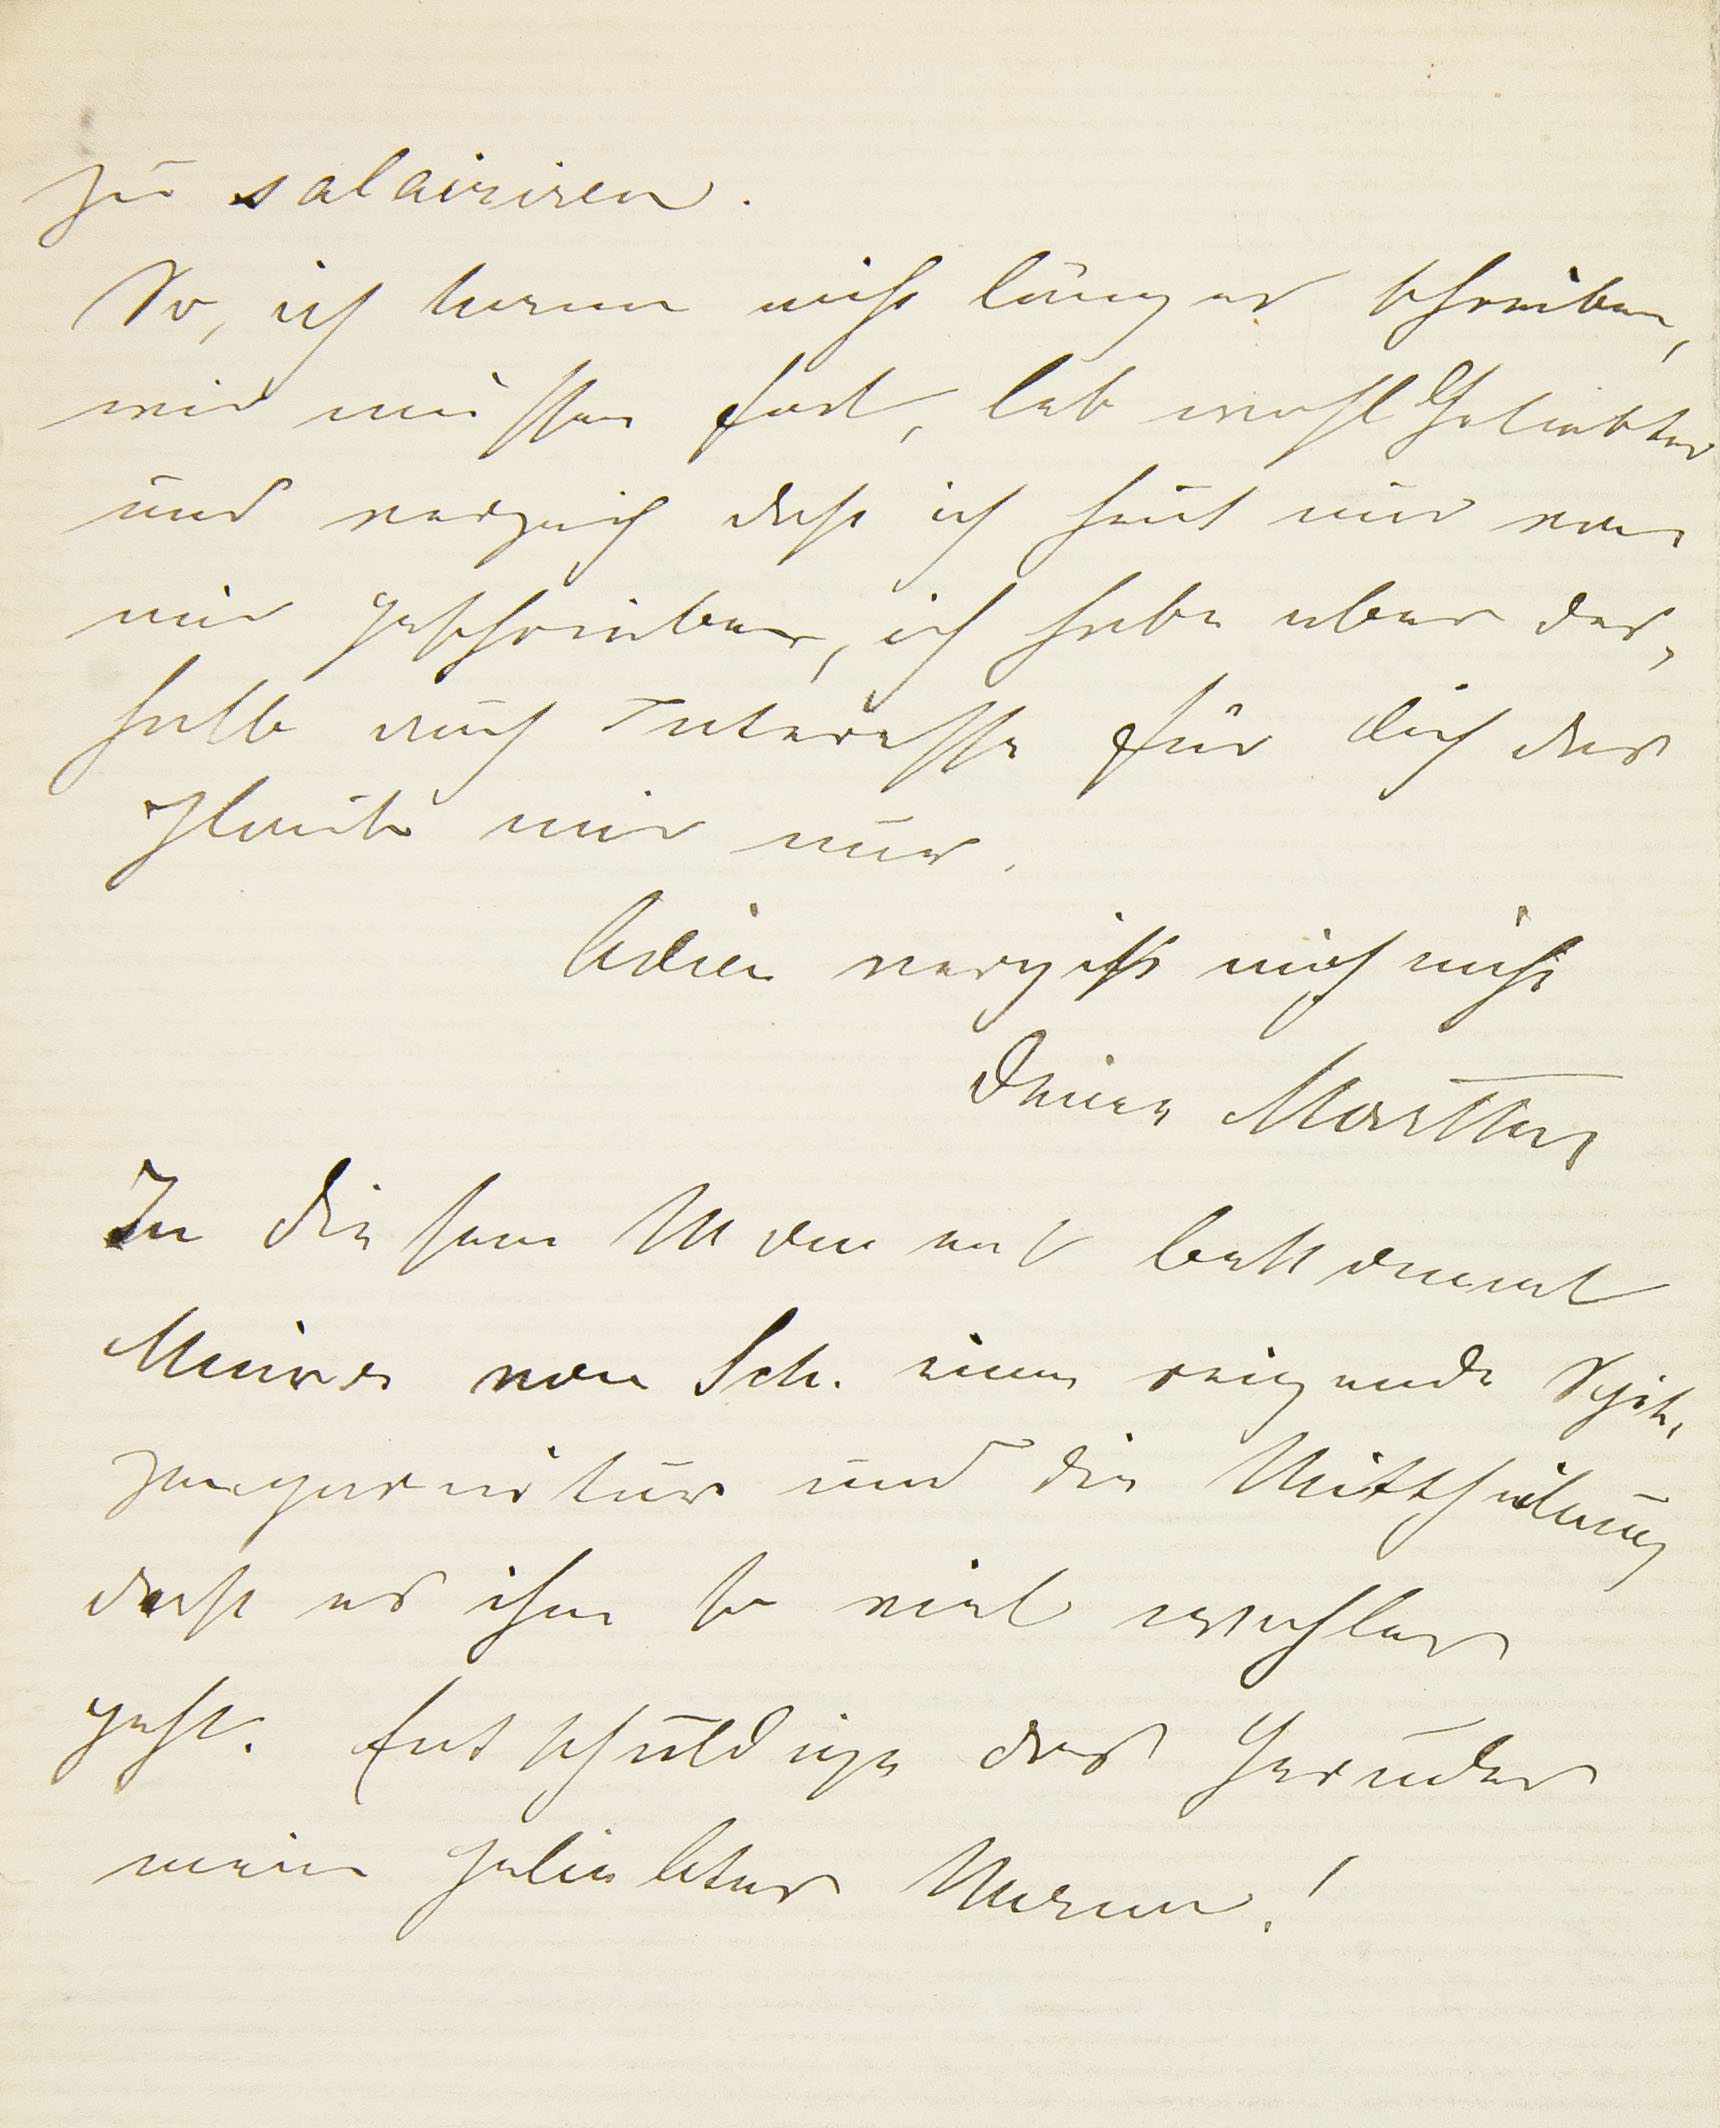 zu salairiren.
So, ich kann nicht länger schreiben,
wir müssen fort, leb wohl Geliebter
und verzeih daß ich heut nur von
mir geschrieben, ich habe aber des,
halb auch Interesse für dich das
glaube mir nur.
Adieu vergiß mich nicht
Deine Martha
In diesem Moment bekommt
Minna von Sch. eine reizende Spit,
zengarnitur und die Mittheilung
daß es ihm so viel wohler
geht. Entschuldige das Gesudel
mein geliebter Mann!